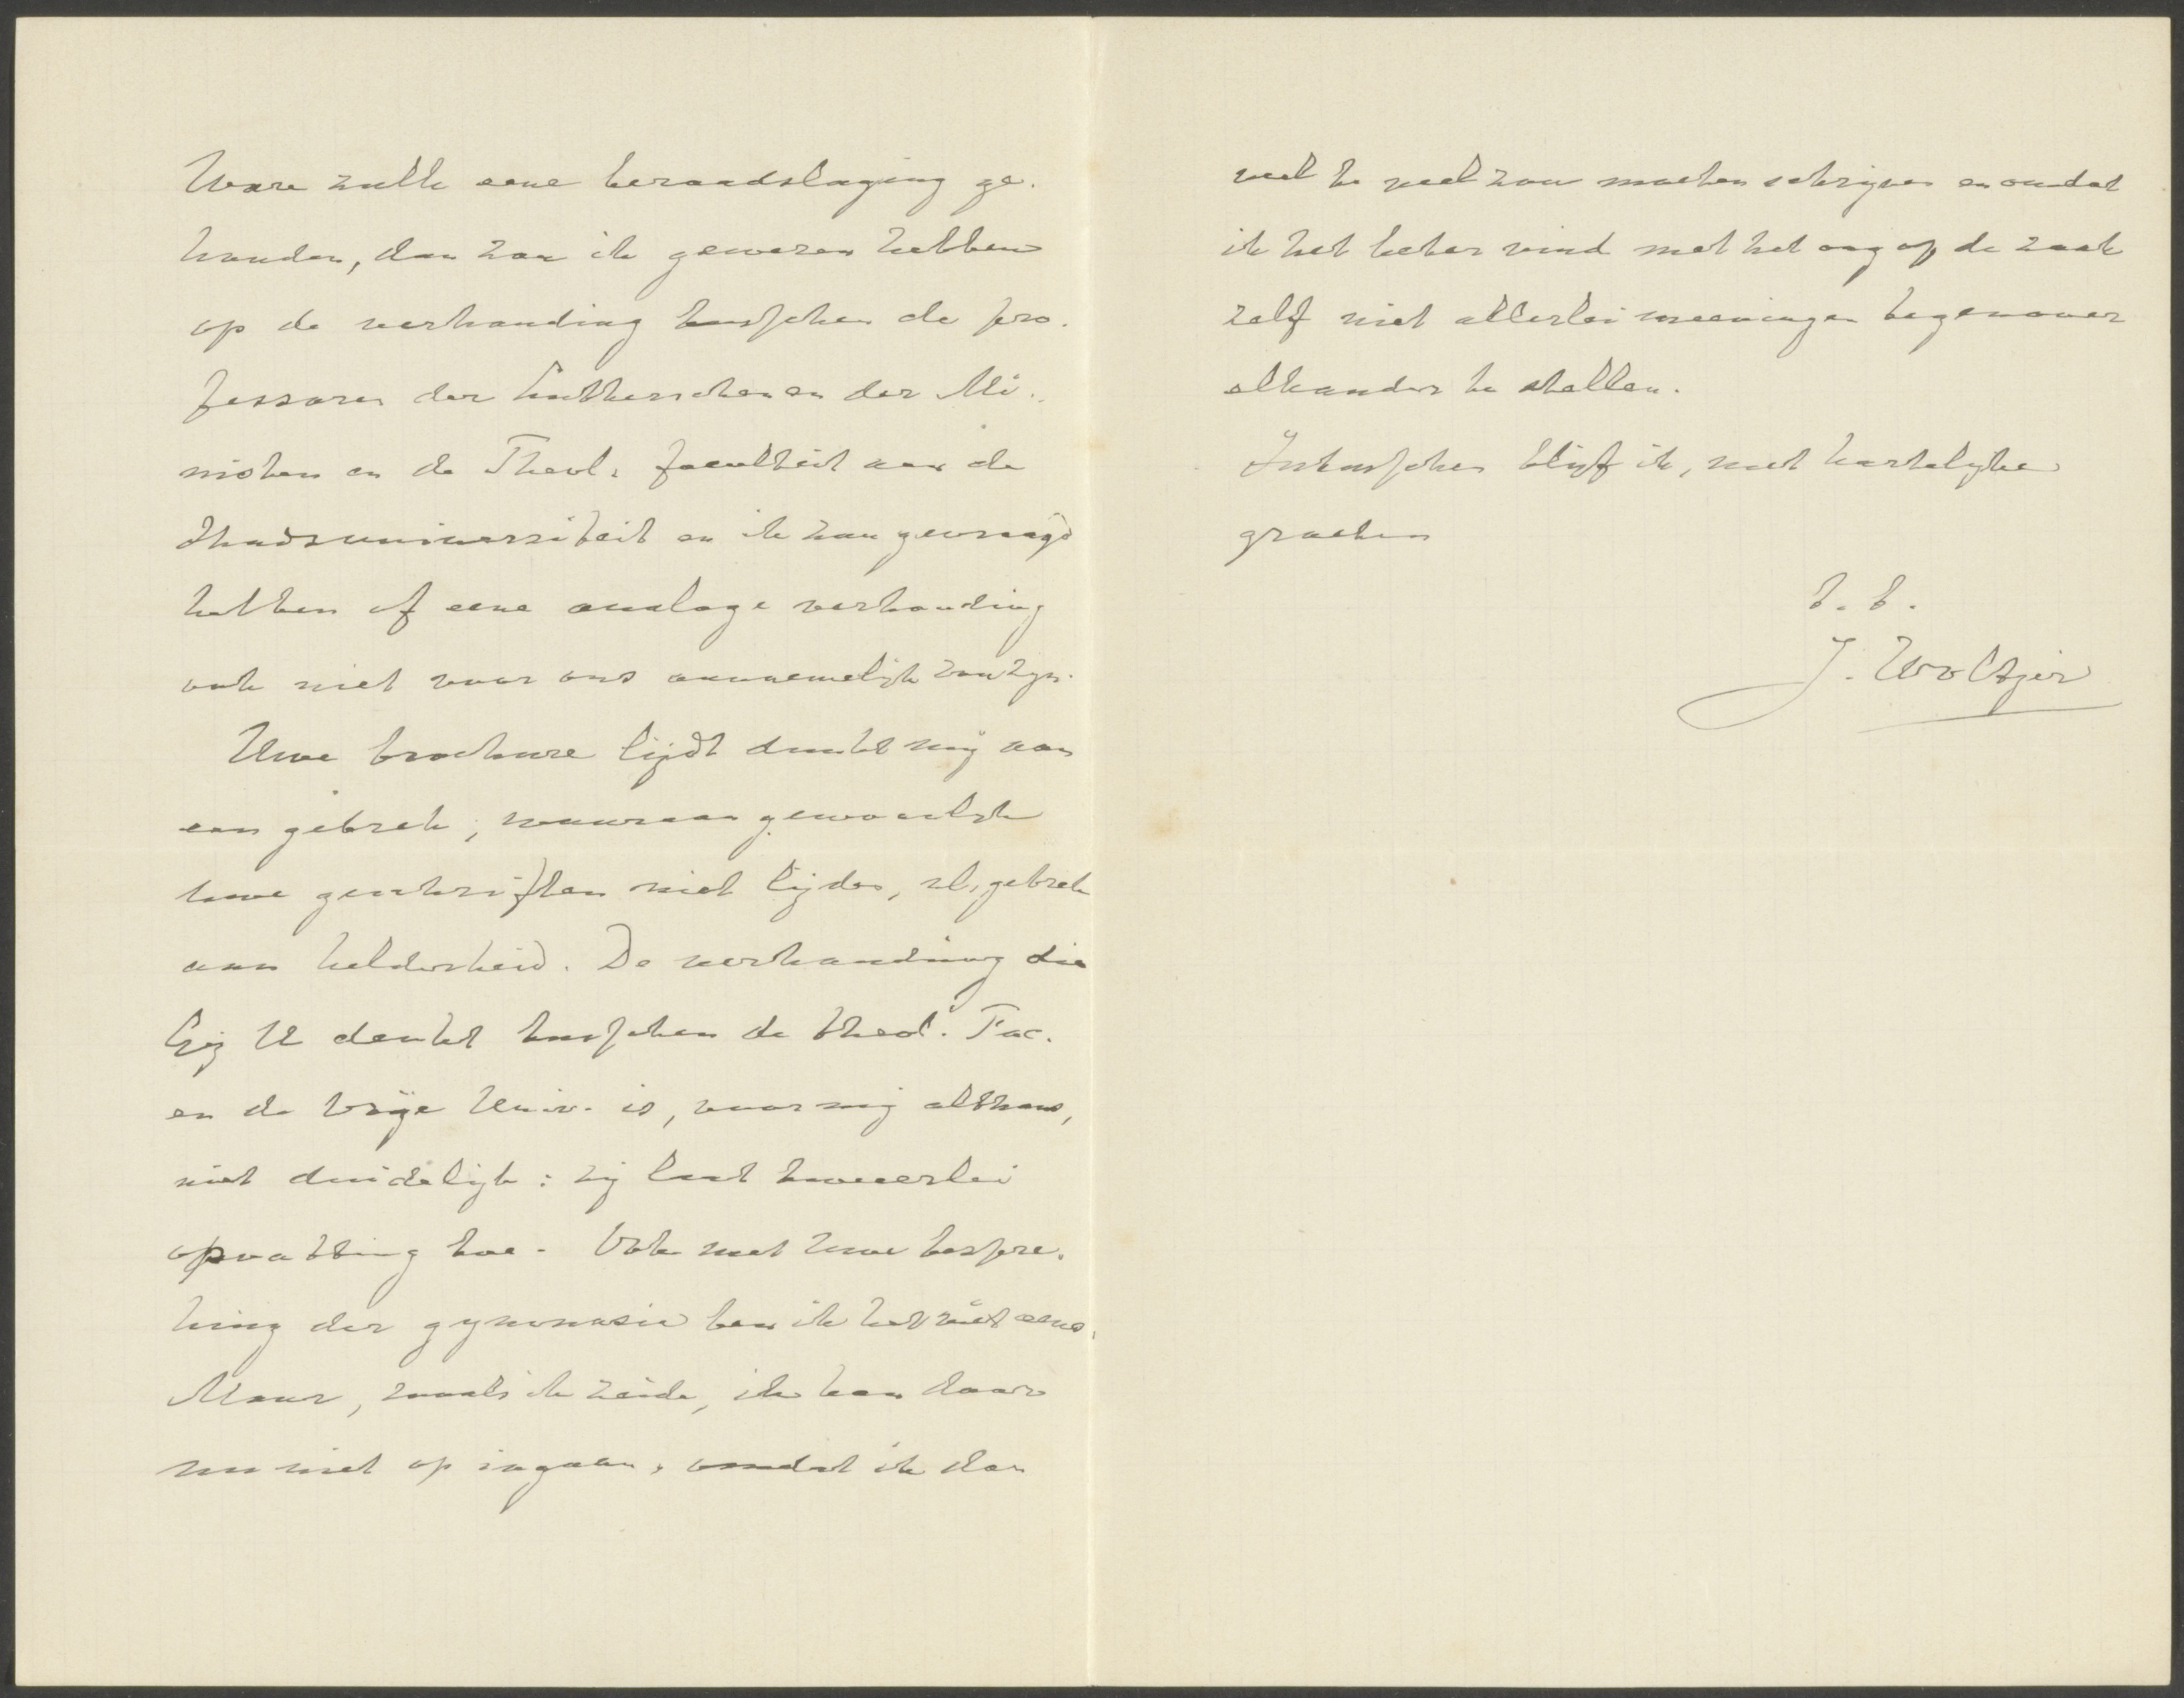 Ware zulk eene beraadslaging ge-
houden, dan zou ik gewezen hebben
op de verhouding tusschen de pro-
fessoren der Lutherschen en der Me-
nisten en de Theol. faculteit aan de
Stadsuniversiteit en ik zou gevraagd
hebben of eene analoge verhouding
ook niet voor ons aannemelijk zou zijn.
Uwe brochure lijdt dunkt mij aan
een gebrek, waaraan gewoonlijk
uwe geschriften niet lijden, nl. gebrek
aan helderheid. De verhouding die
Gij U denkt tusschen de theol. Fac.
en de Vrije Univ. is, voor mij althans,
niet duidelijk: zij laat tweeërlei
opvatting toe. Ook met uwe bespre-
king der gymnasia ben ik het niet eens.
Maar, zooals ik zeide, ik kan daar
nu niet op ingaan, omdat ik dan
veel te veel zou moeten schrijven en omdat
ik het beter vind met het oog op de zaak
zelf niet allerlei meeningen tegenover
elkander te stellen.
Intusschen blijf ik, met hartelijke
groeten
t. t.
J. Woltjer